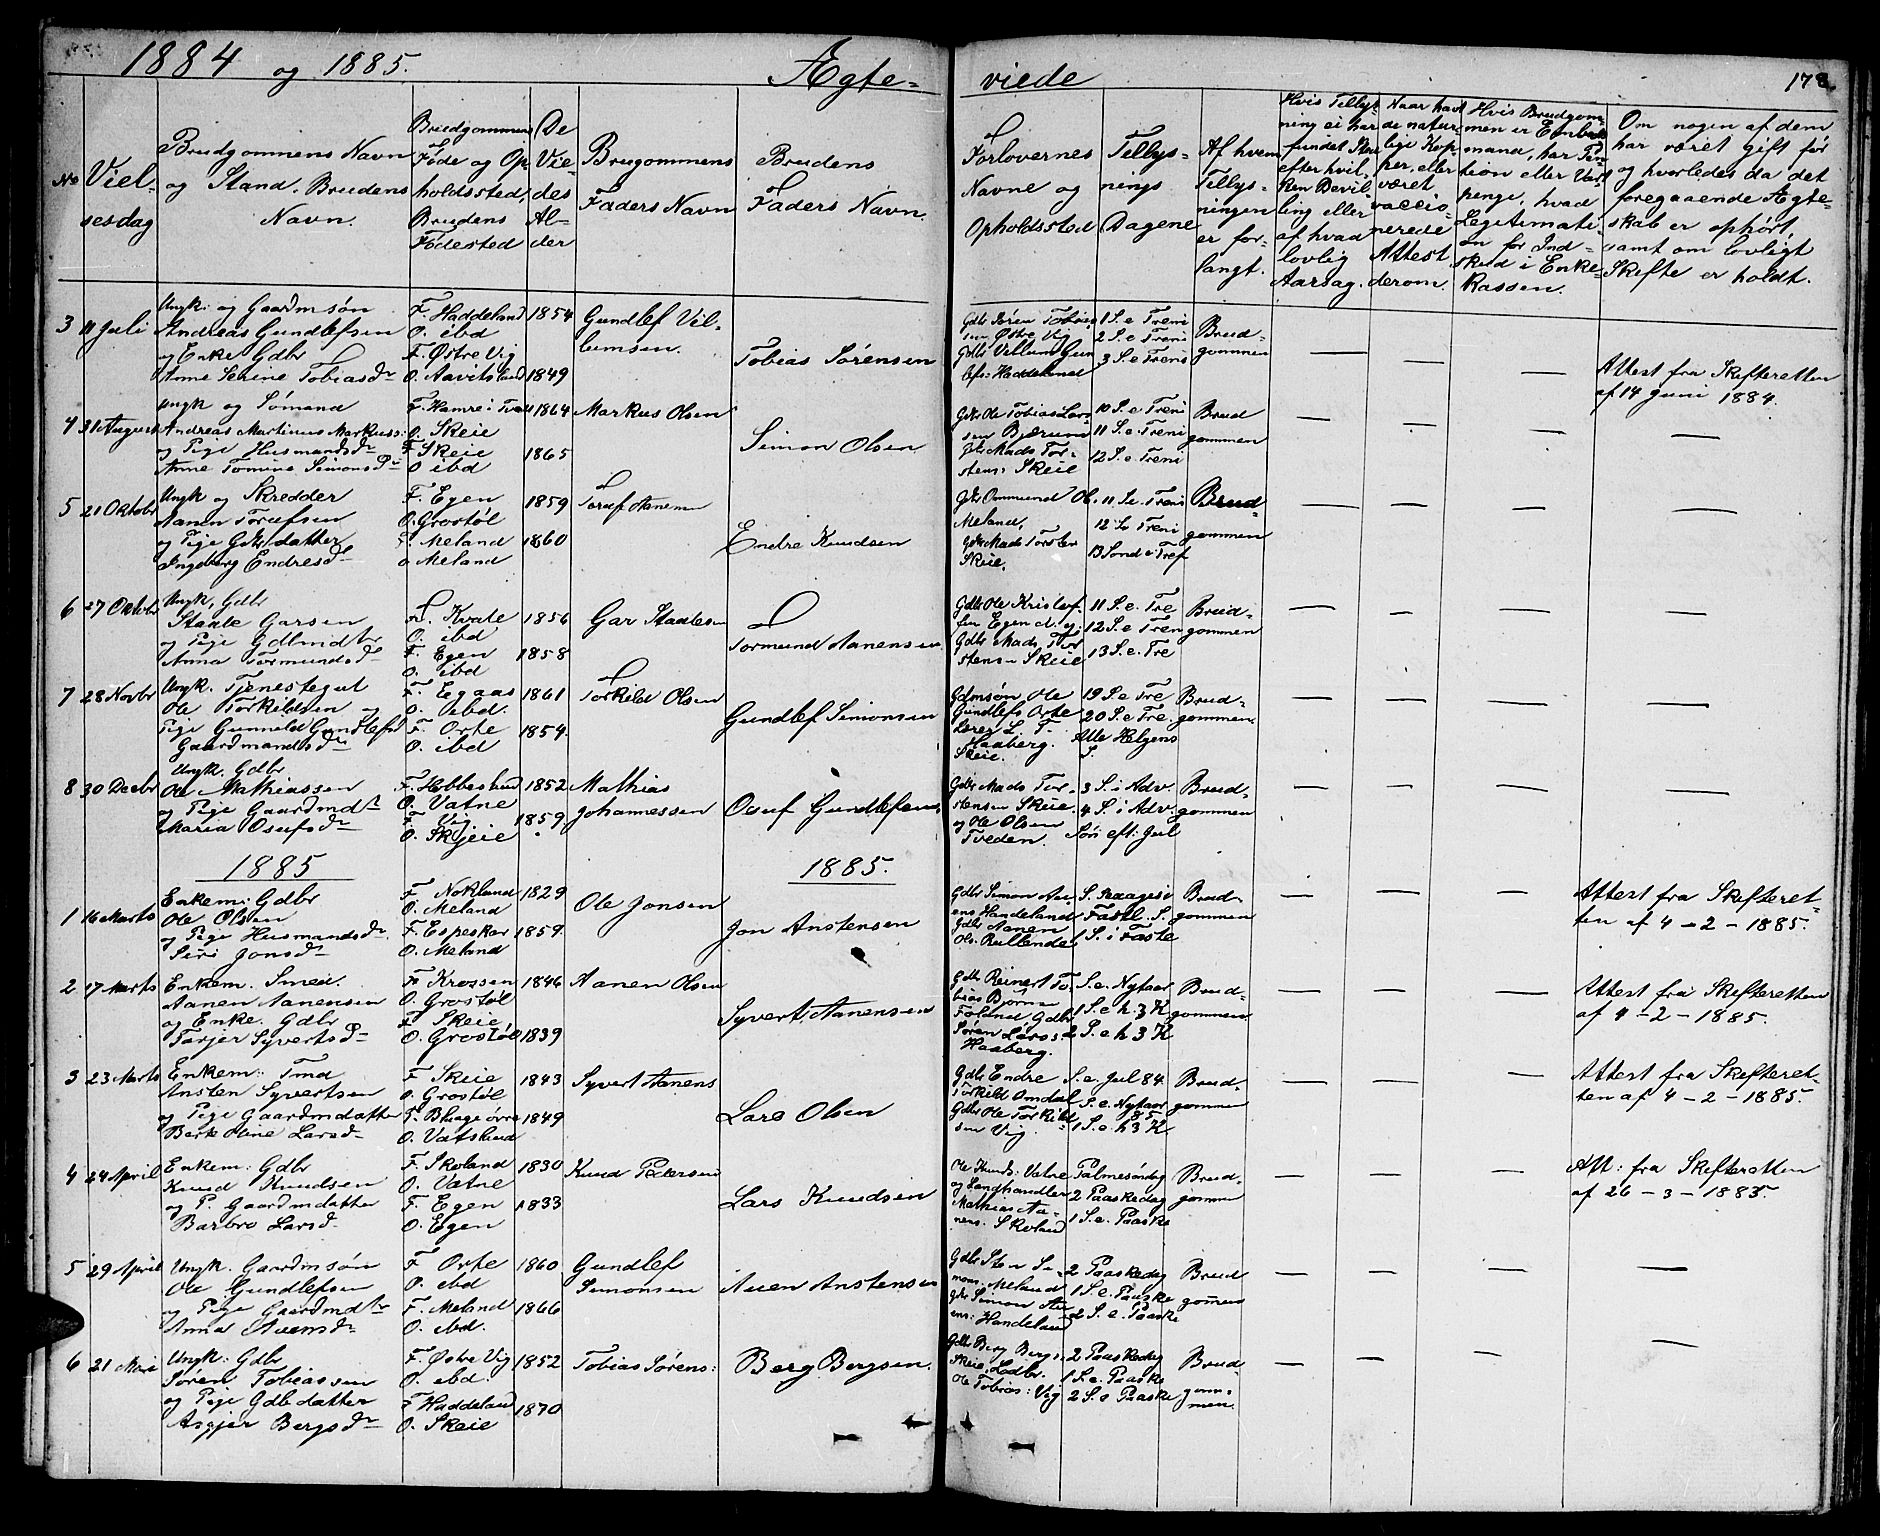 1884 og 1885.
Ægte-
viede
178.
No
Viel-
sesdag
Brudgommens Navn
og Stand. Brudens
Navn.
Brudgommens
Føde og Op-
holdssted,
Brudens
Fødested
De
Vie-
des
Al-
der
Brugommens
Faders Navn
Brudens
Faders Navn.
Forlovernes
Navne og
Opholdssted
Tillys-
nings
Dagene
Af hvem
Tillys-
ningen
er for-
langt.
Hvis Tillys-
ning ei har
fundet Sted
efter hvil-
ken Bevil-
ling eller
af hvad
lovlig
Aarsag.
Naar havt
de natur-
lige Kop-
per, eller
været
vaccio-
nerede
Attest
derom.
Hvis Brudgom-
men er Embeds
mand, har Pen-
tion eller Vart-
penge, hvad
Legitimati-
on for Ind-
skud i Enke-
Kassen.
Om nogen af dem
har været gift før
og hvorledes da det
foregaaende Ægte-
skab er ophørt,
samt om lovligt
Skifte er holdt.
3 11 Juli
Ungk: og Gaardmsøn
Andreas Gundlefsen
og Enke Gdbr
Anne Serine Tobiasdr
F. Haddeland
O. ibd
F. Østre Vig
O. Aavitsland
1854
1849
Gundlef Vil-
lumsen.
Tobias Sørensen
Gdbr Søren Tobias
sen Østre Vig
Gdbr Villum Gun
lefs: Haddeland
1 S. e Treni
2 S. e Treni
3 S. e Treni
Brud-
gommen
Attest fra Skifteretten
af 14 Juni 1884.
4 31 August
Ungk og Sømand
Andreas Martinus Markuss:
og Pige Husmandsdr
Anne Tomine Simonsdr
F. Hamre i Tveit
O. Skeie
F. Skeie
O ibd
1864
1865
Markus Olsen
Simon Olsen
Gdbr Ole Tobias Lars
sen Bjærum
Gdbr Mads Tor-
stens: Skeie
10 S. e Treni
11 S. e. Treni
12 S. e. Treni
Brud
gommen
5 21 Oktobr
Ungk og Skredder
Aanen Torufsen
og Pige Gdbrdatter
Ingeborg Endresdr
F. Egen
O. Grostøl
F. Meland
O Meland
1859
1860
Toruf Aanensen
Endre Knudsen
Gdbr Ommund Ol.
Meland,
Gdbr Mads Torsten
Skeie.
11 S. e. Treni
12 S. Treni
13 Sond e Tref
Brud-
gommen
6 27 Oktobr
Ungk, Gdbr
Staale Garsen
og Pige Gdlmdtr
Anna Tormundsdr
F. Kvale
O. ibd
F. Egen
O. ibd
1856
1858
Gar Staalesen
Tormund Aanensen
Gdbr Ole Kristof-
fen Egen d. y.
Gdbr Mads Tor
stens: Skeie
11 S. e. Tre
12 S. e Tren
13 S. e. Tre
Brud-
gommen
7 28 Novbr
Ungk. Tjenestegut
Ole Torkildsen og
Pige Gunneld Gundlefsd
Gaardmandsdr
F. Egaas
O. ibd.
F. Orte
O. ibd
1861
1854.
Torkild Olsen
Gundlef Simonsen
Gdmsøn Ole
Gundlefs Orte
Lærer L. T.
Haaberg.
Skeie.
19 S. e Tre
20 S. e Tre.
Alle Helgens
S.
Brud-
gommen.
8 30 Decbr
Ungk. Gdbr
Ole Mathiassen
og Pige Gaardmdtr
Maria Osufsdr
F. Hobbeslad
O. Vatne
F. Vig
O. Skjeie
1852
1859
Mathias
Johannessen
Osuf Gundlefsen
Gdbr Mads Tor-
stensen Skeie
og Ole Olsen
Tveden.
3 S. i Adv.
4 S. i Adv.
Søn eft: Jul
Brud-
gommen
1885
1885.
1 16 Marts
Enkem: Gdbr
Ole Olsen
og Pige Husmandsdr.
Siri Jonsdr
F. Nokland
O. Meland
F. Espeskar
O. Meland
1829
1859.
Ole Jonsen
Jon Anstensen
Gdbr Simon Au-
ens Handeland
Gdbr Aanen
Ols. Rullende
S. Kaagesi
Fastl. S.
1 S. i Faste
Brud-
gommen
Attest fra Skifteret-
ten af 4 - 2 - 1885.
2 17 Marts
Enkem. Smed.
Aanen Aanensen
og Enke. Gdbr
Tarjer Syvertsdr
F. Krossen
O. Grostøl
F. Skeie
O. Grostøl
1846
1839
Aanen Olsen
Syvert Aanensen
Gdbr Reinert To-
bias Bjørnn
Følland Gdbr
Søren Larss:
Haaberg.
S. e. Nytaar
1 S. e h. 3 K
2 S. e h 3 K
Brud-
gommen
Attest fra Skifteretten
af 4 - 2 - 1885.
3 23 Marts
Enkem: Tmd
Ansten Syvertsen
og Pige Gaardmdatter
Berte Oline Larsd
F. Skeie
O. Grostøl
F. Bhage øvre
O. Vatsland
1843
1849
Syvert Aanens
Lars Olsen
Gdbr Endre
Torkild Omdal
Gdbr Ole Torkild
sen Vig.
S. e. Jul 84.
S. e. Nytaar
85
1 S. e. h 3 K.
Brud-
gommen
Attest fra Skifteret-
ten af 4 - 2 - 1885.
4 24 April
Enkem: Gdbr
Knud Knudsen
og P. Gaardmdatter
Barbro Larsd
F. Skoland
O. Vatne
F. Egen
O. Egen
1830
1833
Knud Pedersen
Lars Knudsen
Ole Knuds: Vatne
og Landhandler
Mathias Aa-
nens. Skoland
Palmesøndag
2 Paaskedag
1 S. e. Paaske
Brud-
gommen
Att: fra Skifteretten
af 26 - 3 - 1885.
5 29 April
Ungk. Gaardmsøn
Ole Gundlefsen
og Pige Gaardmdtr
Anna Auensdr
F Orte
O. ibd
F. Meland
O. ibd.
1860
1866
Gundlef
Simonsen
Auen Anstensen
Gdbr Sten Si-
mons: Meland
Gdbr Simon Au-
ens: Handeland
2 Paaskedag
1 S. e. Paaske
2 S. e. Paaske
Brud
gommen
6 21 Mai
Ungk: Gdbr
Søren Tobiassen
og Pige Gdbrdatter
Asgjer Bergsdr
F. Østre Vig
O. ibd.
F Haddeland
O. Skeie
1852
1870
Tobias Sørens:
Berg Bergsen.
Gdbr Berg Bergs:
Skeie. Gdbr.
Ole Tobias: Vig
2 Paaskedag
1 S. e. Paaske
2 S. e Paaske
Brud-
gom-
men.